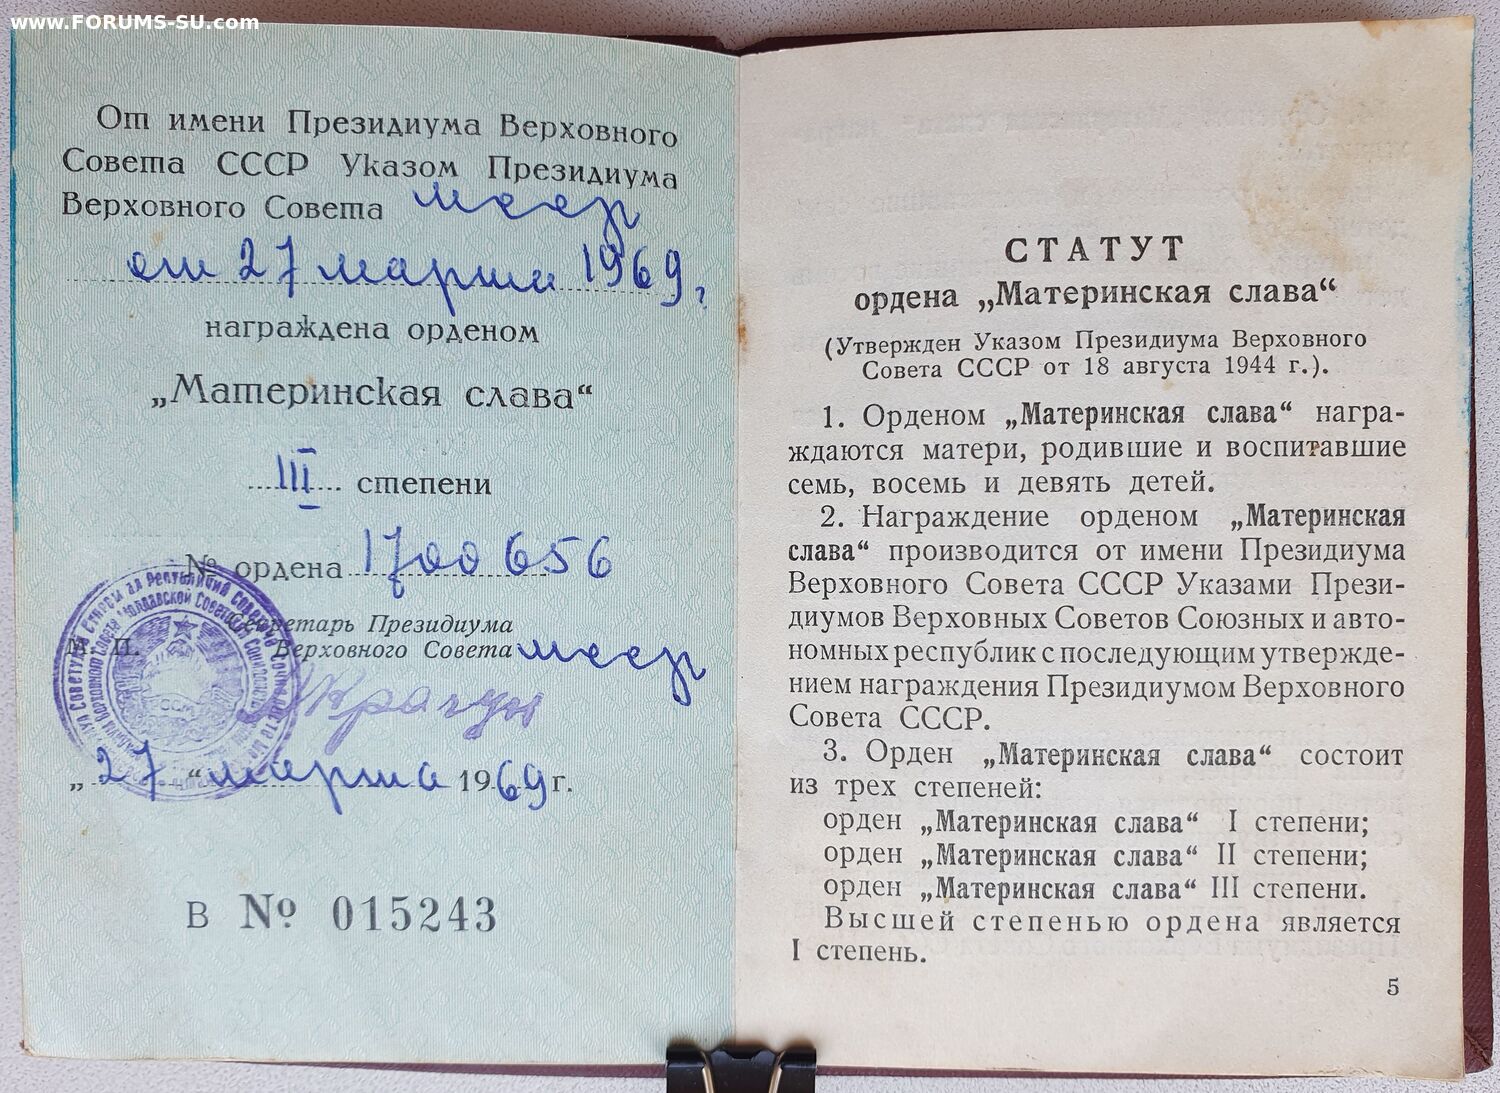 www.FORUMS-SU.com
От имени Президиума Верховного
Совета СССР Указом Президиума
Верховного Совета мсср
от 27 марта 1969 г.
награждена орденом
„Материнская слава“
III степени
№ ордена 1700656
Секретарь Президиума
М. П. Верховного Совета мсср
„27“ марта 1969 г.
В № 015243
СТАТУТ
ордена „Материнская слава“
(Утвержден Указом Президиума Верховного
Совета СССР от 18 августа 1944 г.).
1. Орденом „Материнская слава“ награ-
ждаются матери, родившие и воспитавшие
семь, восемь и девять детей.
2. Награждение орденом „Материнская
слава“ производится от имени Президиума
Верховного Совета СССР Указами Прези-
диумов Верховных Советов Союзных и авто-
номных республик с последующим утвержде-
нием награждения Президиумом Верховного
Совета СССР.
3. Орден „Материнская слава“ состоит
из трех степеней:
орден „Материнская слава“ I степени;
орден „Материнская слава“ II степени;
орден „Материнская слава“ III степени.
Высшей степенью ордена является
I степень.
5